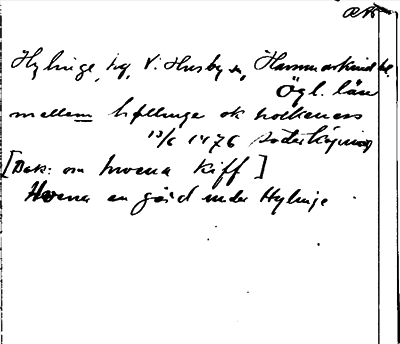 Hylinge, hg, V. Husby sn, Hammarkind hd.
Ögl. län
mellem höllinge ok holkenæs
13/6 1476 Söderköping
[Dok: om hwena Kiff]
Hwena en gård under Hylinge